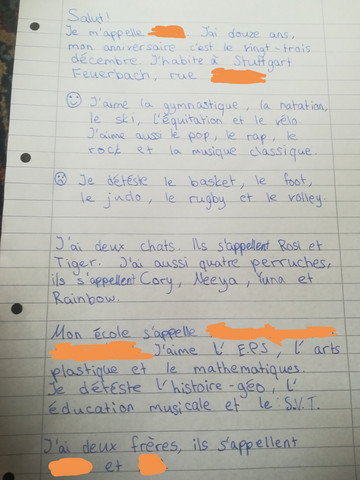 Salut!
Je m'appelle
J'ai douze ans,
mon anniversaire c'est le vingt-trois
décembre. J'habite à Stuttgart
Feuerbach, rue
J'aime la gymnastique, la natation,
le ski, l'équitation et le vélo.
J'aime aussi le pop, le rap, le
rock et la musique classique.
Je déteste le basket, le foot,
le judo, le rugby et le volley.
J'ai deux chats. Ils s'appellent Rosi et
Tiger. J'ai aussi quatre perruches,
ils s'appellent Cory, Neeya, Yuna et
Rainbow.
Mon école s'appelle
J'aime l'E.P.S, l'arts
plastique et le mathematiques.
Je déteste l'histoire-géo, l'
éducation musicale et le S.V.T.
J'ai deux frères, ils s'appellent
et